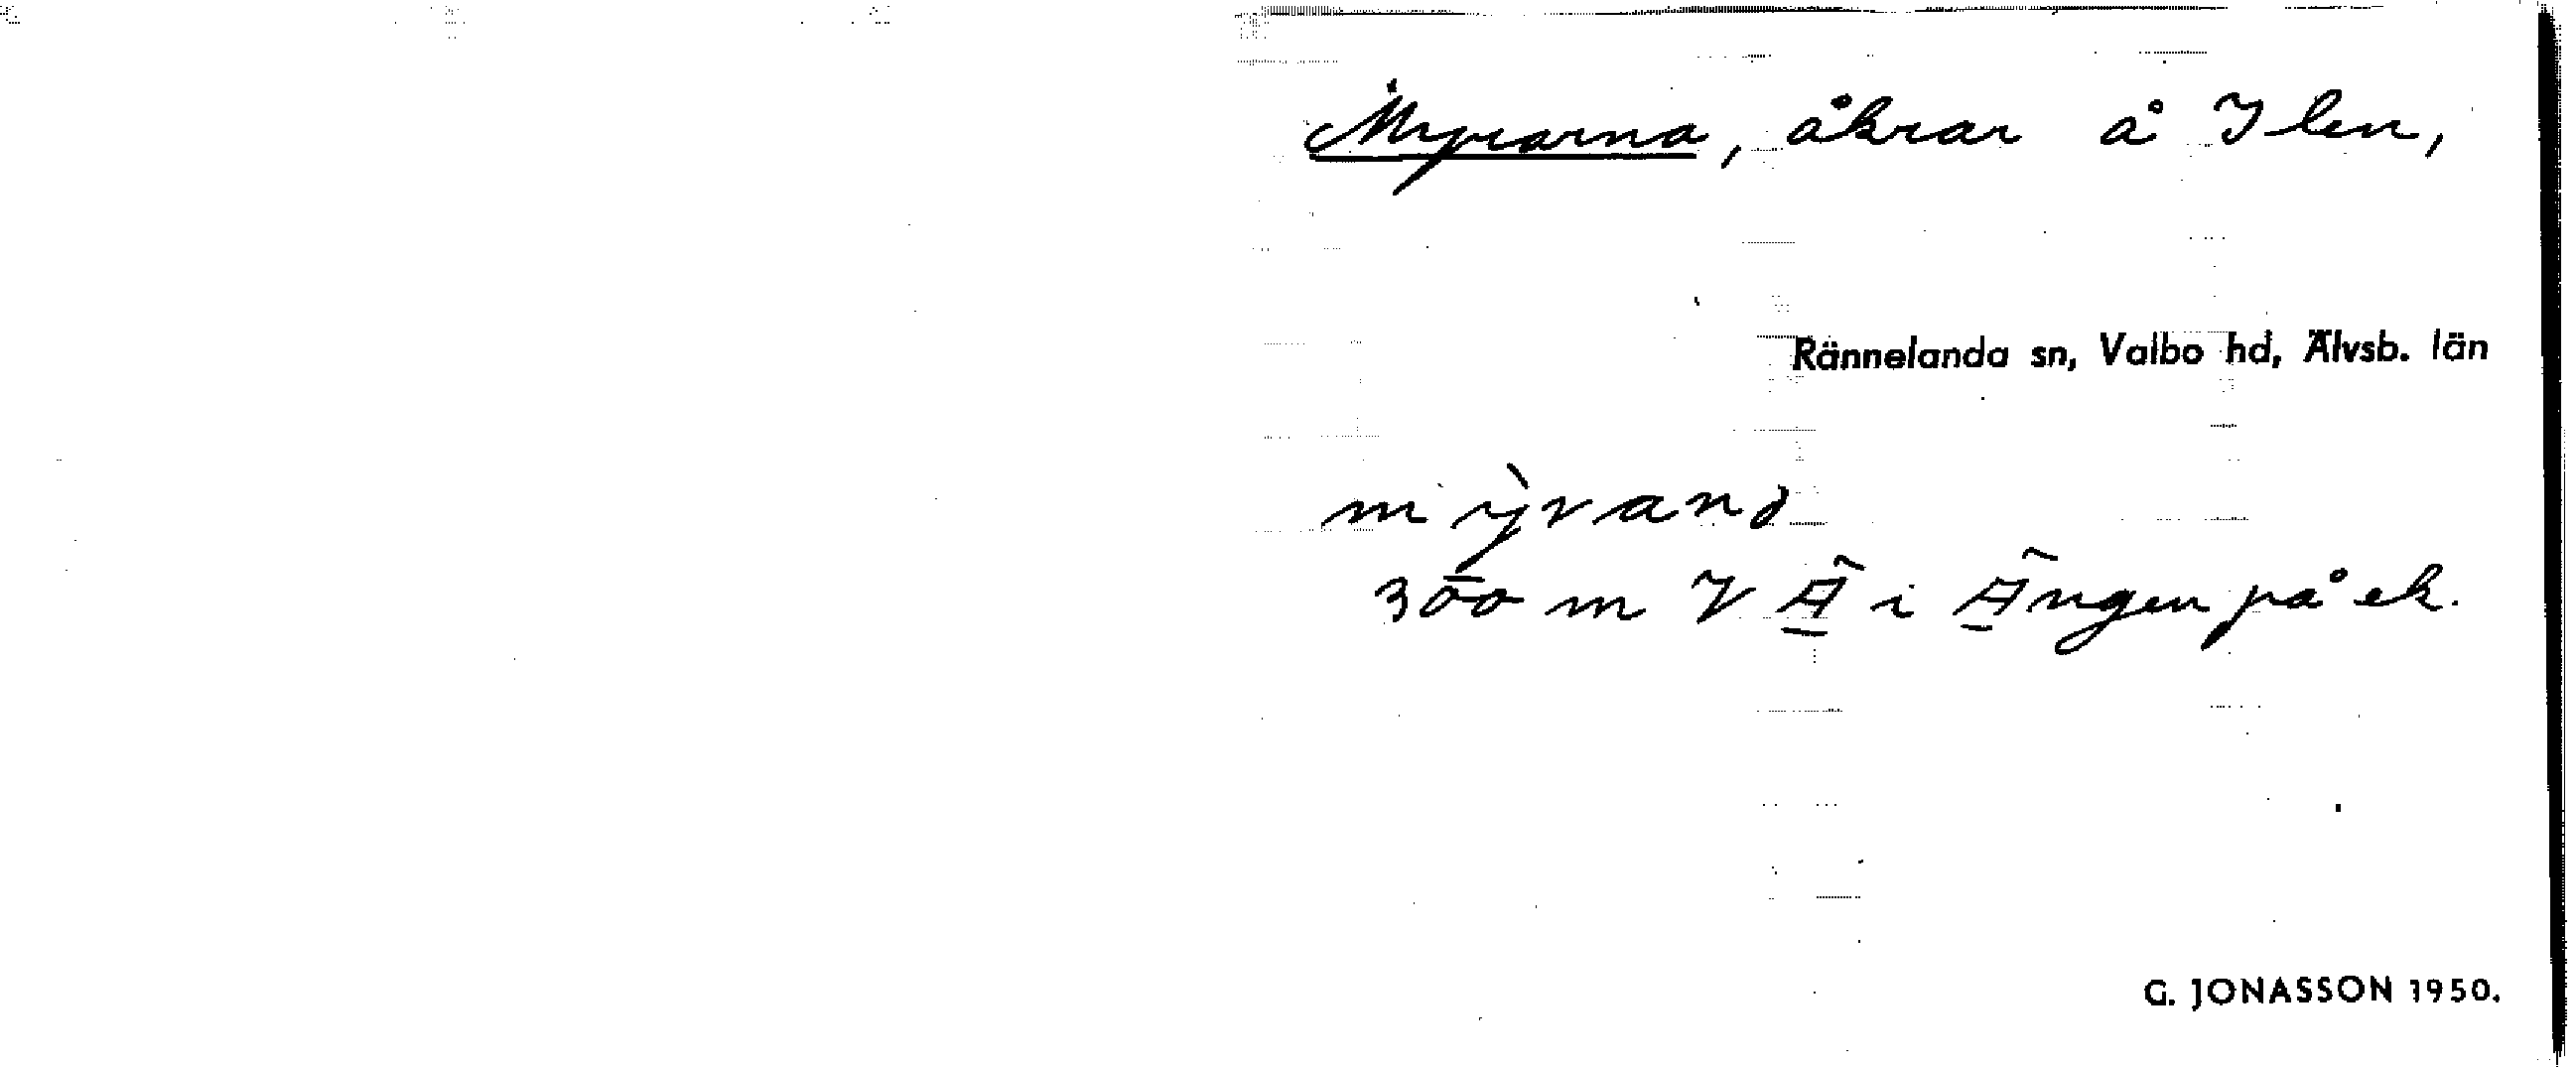 Myrarna, åkrar å Ilen,
Rännelanda sn, Valbo hd, Älvsb. län
mỳrană
300 m V Ä i Ängen på ek.
G. JONASSON 1950.